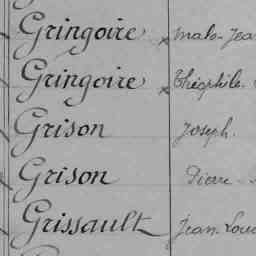 Gringoire Malo-Jea
Gringoire Théophile.
Grison Joseph.
Grison Pierre
Grissault Jean Loui